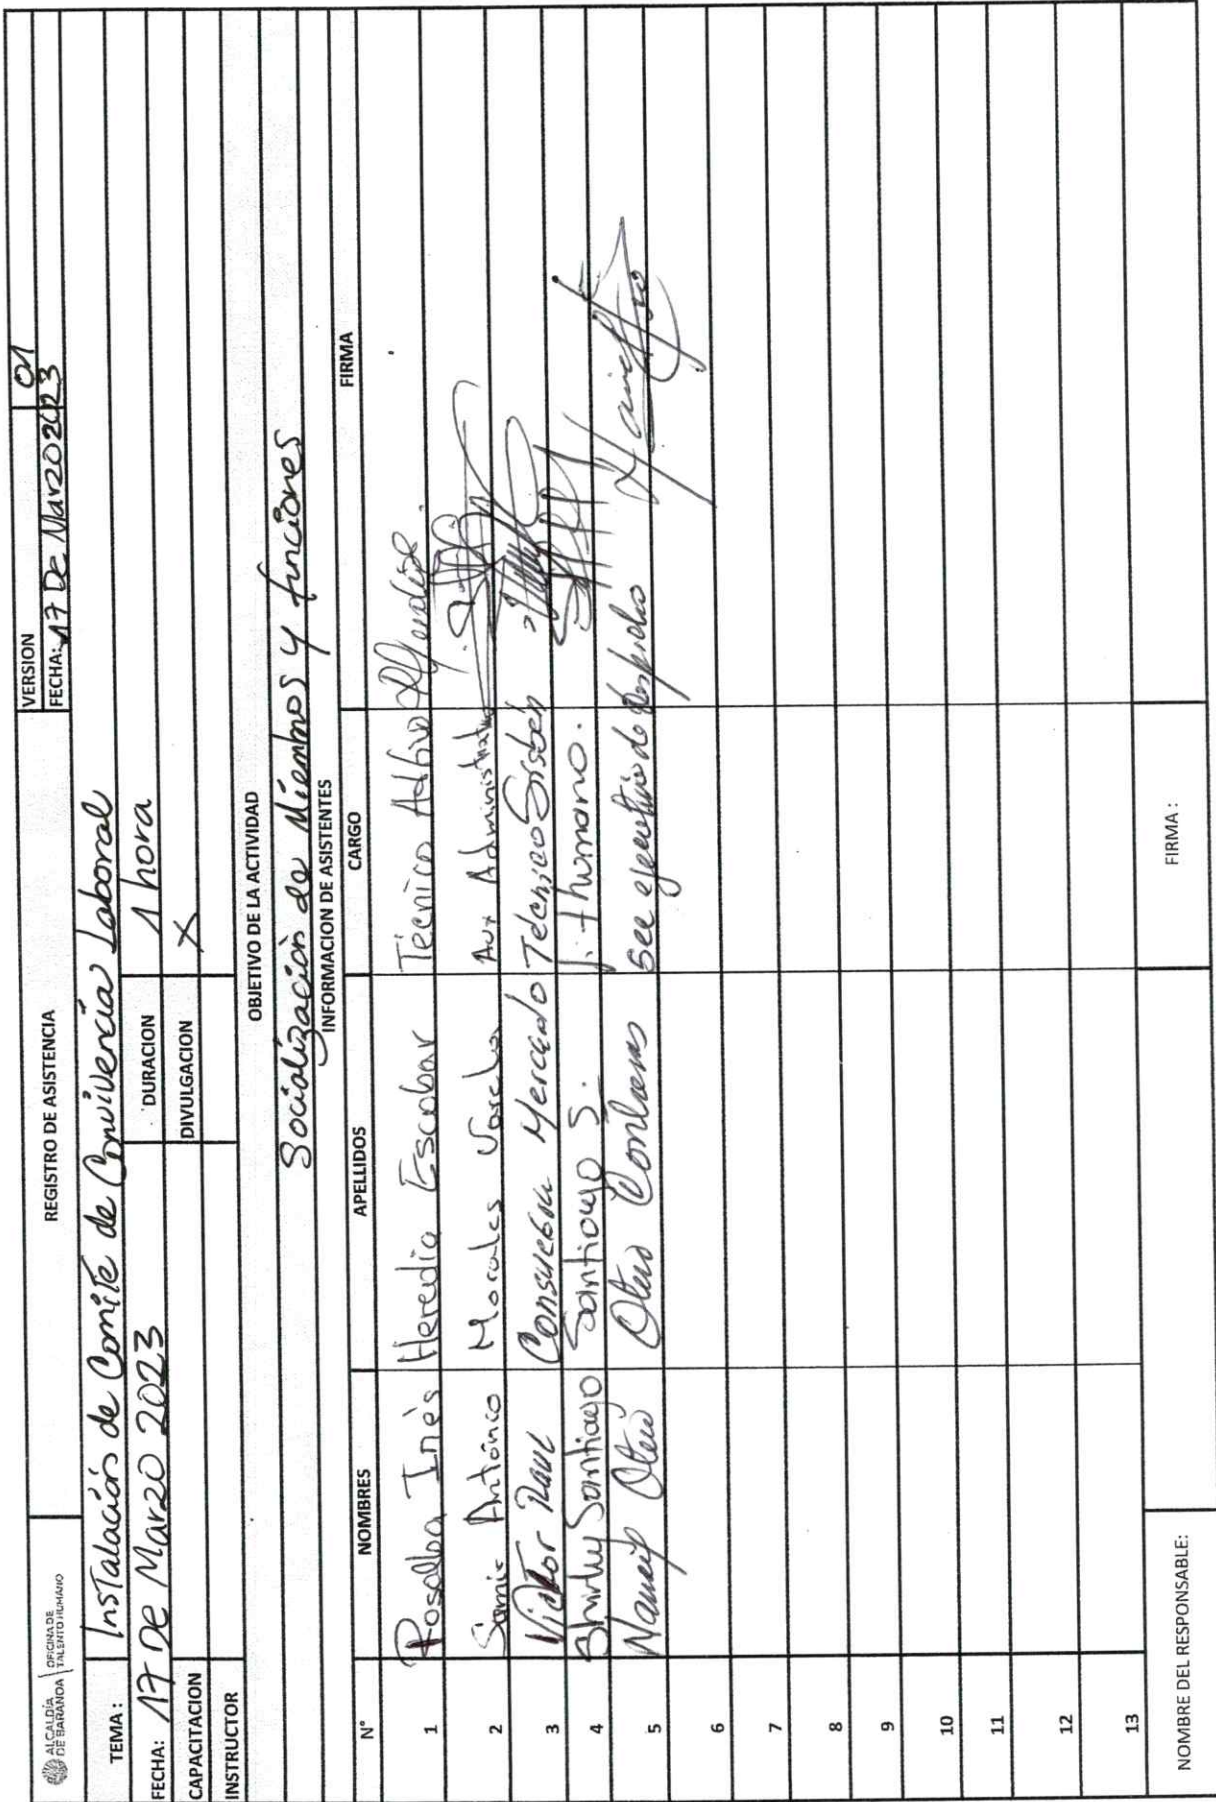 ALCALDÍA DE BARANOA OFICINA DE TALENTO HUMANO
REGISTRO DE ASISTENCIA
VERSION 01
FECHA: 17 De Marzo 2023
TEMA : Instalación de Comité de Convivencia Laboral
FECHA: 17 De Marzo 2023 DURACION 1 hora
CAPACITACION DIVULGACION X
INSTRUCTOR
OBJETIVO DE LA ACTIVIDAD
Socialización de Miembros y funciones
INFORMACION DE ASISTENTES
N° NOMBRES APELLIDOS CARGO FIRMA
1 Rosalba Inés Heredia Escobar Técnico
2 Antonio Morales Aux Administrativo
3 Victor Raul Consuegra Mercado Tecnico Sisben
4 Shirly Santiago Santiago S. t. humano.
5 Nancy Otero Otero Contreras See ejecutivo de despacho
6
7
8
9
10
11
12
13
NOMBRE DEL RESPONSABLE: FIRMA :